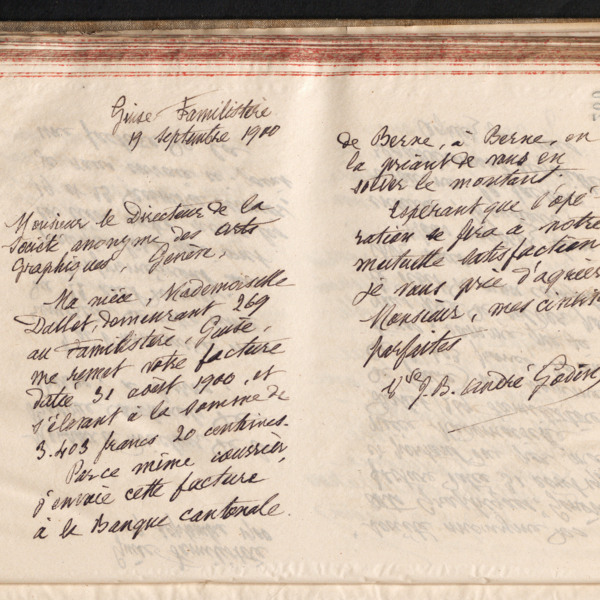 Guise Familistère
19 septembre 1900
Monsieur le Directeur de la
Société anonyme des arts
Graphiques, Genève,
Ma nièce, Mademoiselle
Dallet, demeurant 269
au Familistère, Guise,
me remet votre facture
datée 31 août 1900, et
s'élevant à la somme de
3.403 francs 20 centimes.
Par ce même courrier,
j'envoie cette facture
à la Banque cantonale
de Berne, à Berne, en
la priant de vous en
solver le montant.
Espérant que l'opé-
ration se fera à notre
mutuelle satisfaction
je vous prie d'agréer
Monsieur, mes civilités
parfaites
Vve J. B. André Godin